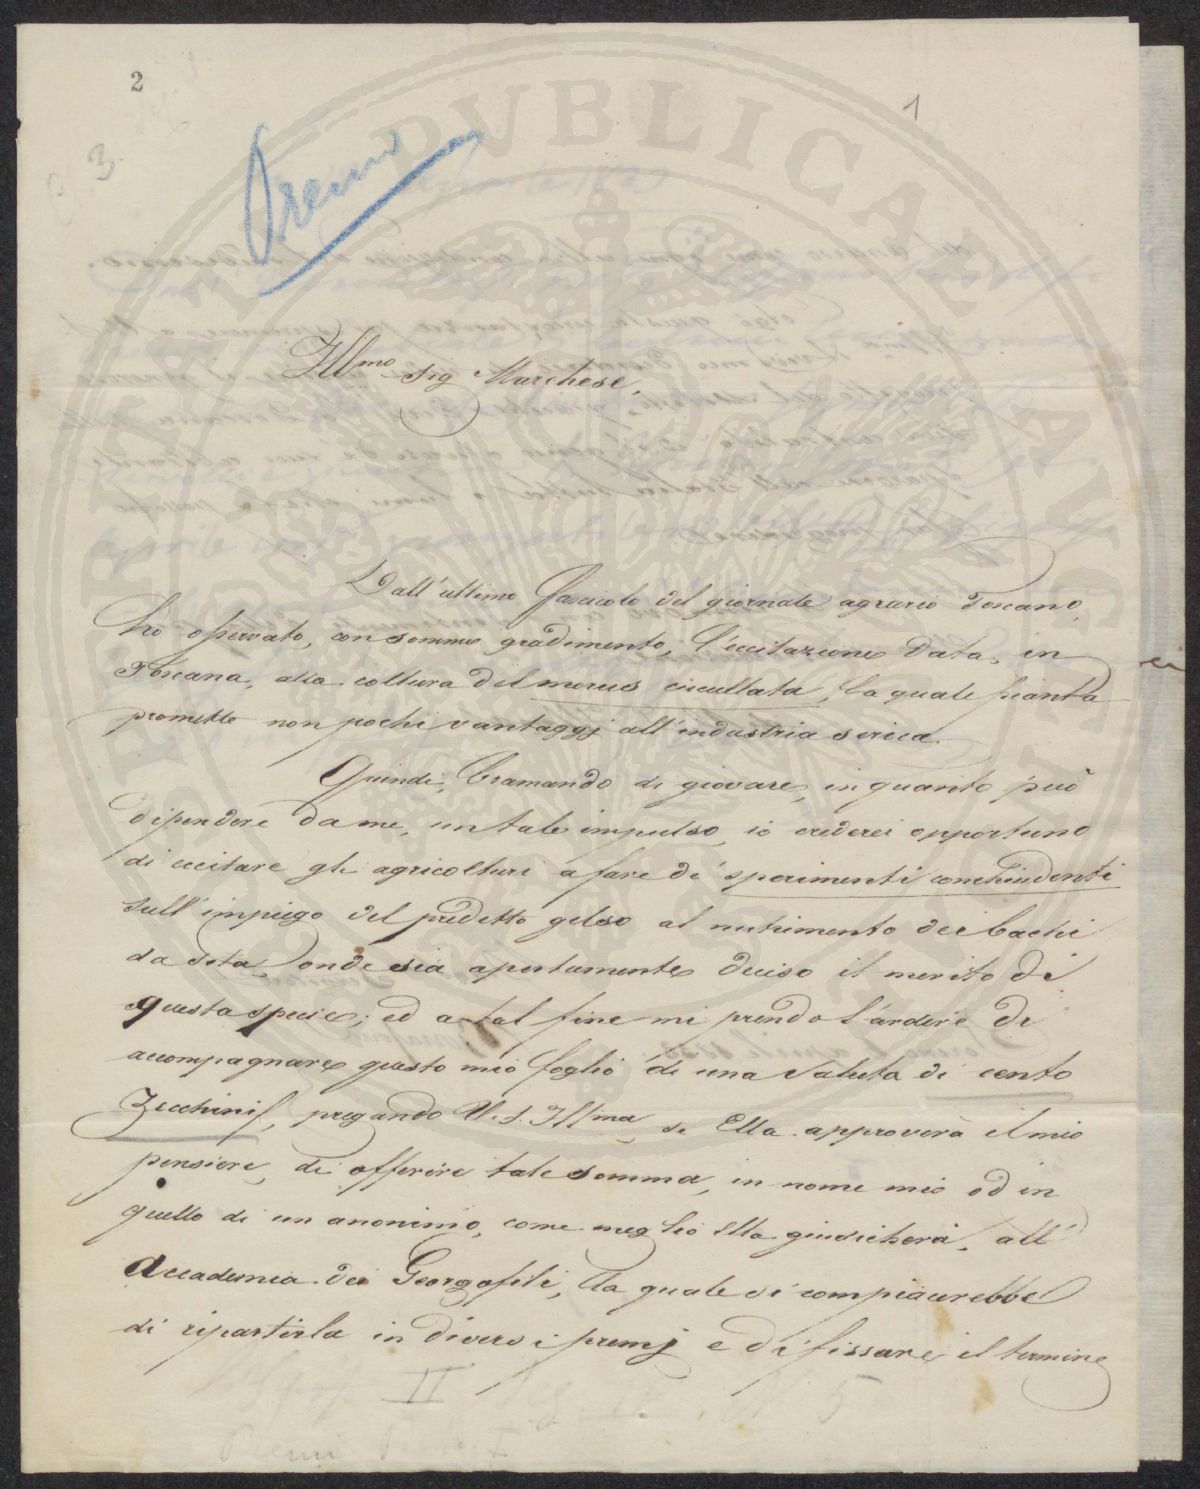 2
1
3
Premi
Ill.mo Sig Marchese,
Dall'ultimo fascicolo del giornale agrario Toscano,
ho osservato, con sommo gradimento, l'eccitazione data, in
Toscana, alla coltura del morus cucullata, la quale pianta
promette non pochi vantaggj all'industria serica.
Quindi, bramando di giovare, in quanto può
dipendere da me, un tale impulso, io crederei opportuno
di eccitare gli agricoltori a fare de' sperimenti conchiudenti
sull'impiego del predetto gelso al nutrimento dei bachi
da seta, onde sia apertamente deciso il merito di
questa specie; ed a tal fine mi prendo l'ardire di
accompagnare questo mio foglio di una valuta di cento
Zecchini, pregando V. S. Ill.ma, se Ella approverà il mio
pensiere, di offerire tale somma, in nome mio od in
quello di un anonimo, come meglio Ella giudicherà, all'
Accademia dei Georgofili, la quale si compiacerebbe
di ripartirla in diversi premj e di fissare il termine
II
5